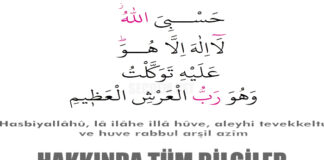 حَسْبِيَ اللّٰهُ
لَٓا اِلٰهَ اِلَّا هُوَۜ
عَلَيْهِ تَوَكَّلْتُ
وَهُوَ رَبُّ الْعَرْشِ الْعَظ۪يمِ
Hasbiyallâhü, lâ ilâhe illâ hüve, aleyhi tevekkeltu
ve huve rabbul arşil azîm
HAKKINDA TÜM BİLGİLER